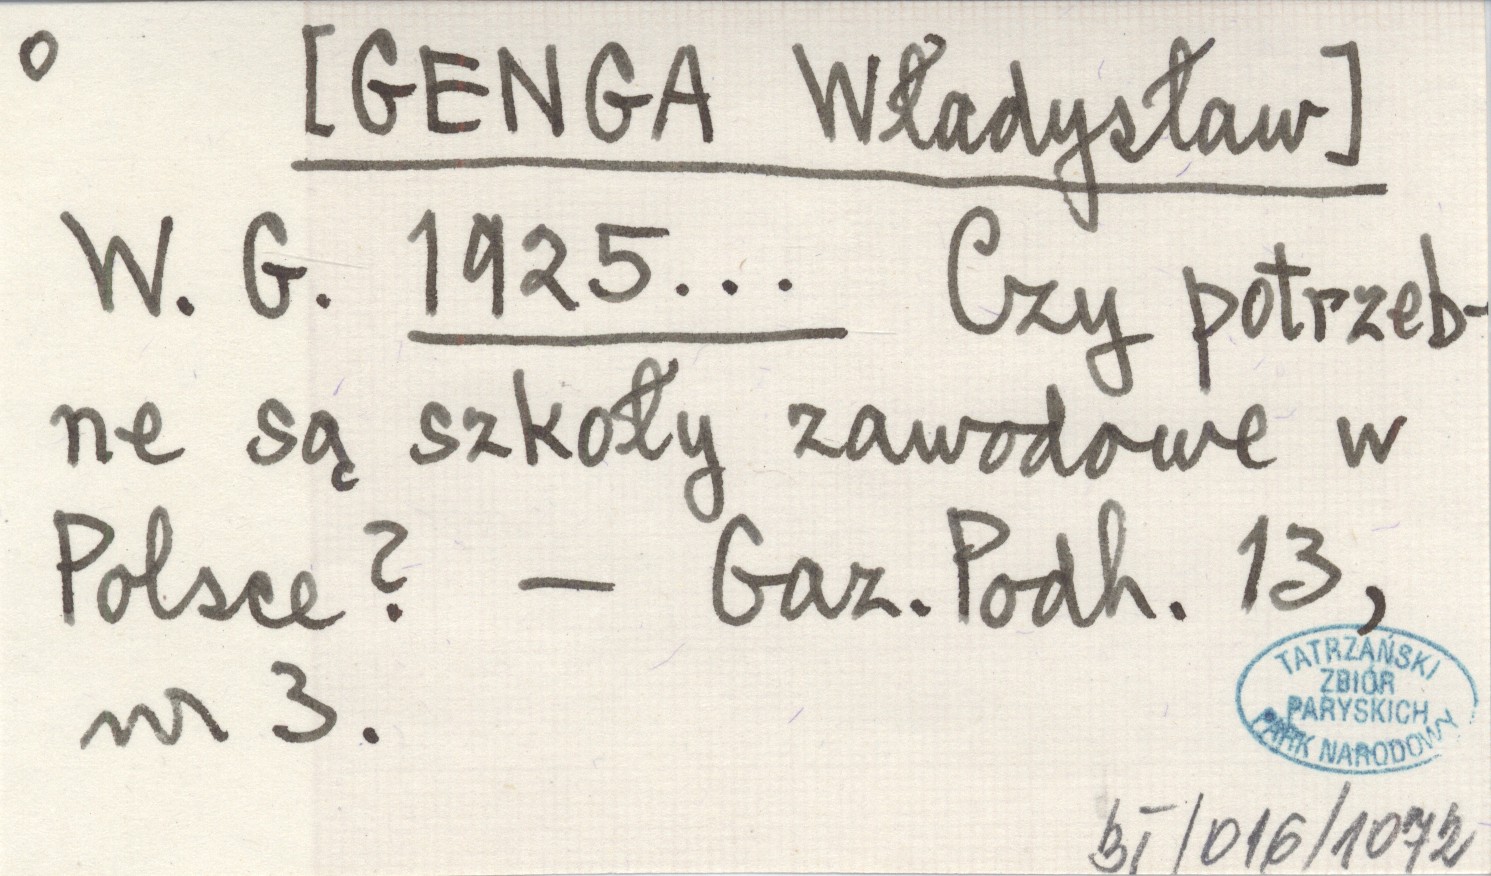 o [GENGA Władysław]
W. G. 1925... Czy potrzeb-
ne są szkoły zawodowe w
Polsce? — Gaz. Podh. 13,
nr 3.
TATRZAŃSKI
ZBIÓR
PARYSKICH
PARK NARODOWY
BI/016/1072